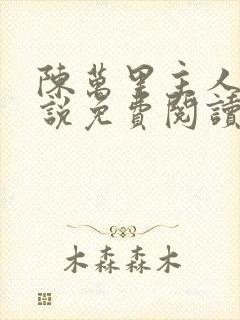 陳萬里主人
說免費閱讀
木森森木